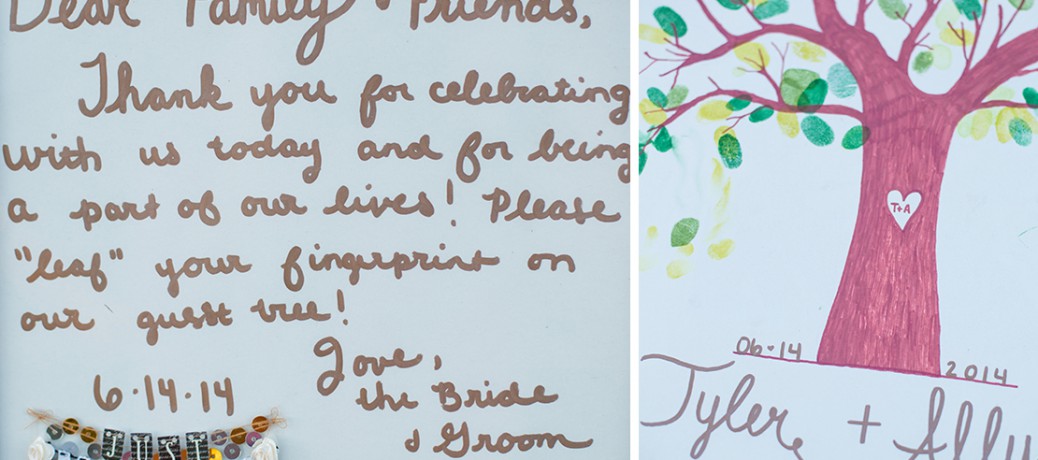 Dear Family & Friends,
Thank you for celebrating
with us today and for being
a part of our lives! Please
"leaf" your fingerprint on
our guest tree!
Love,
the Bride
& Groom
6·14·14
JUST
T+A
06·14
2014
Tyler + Ally